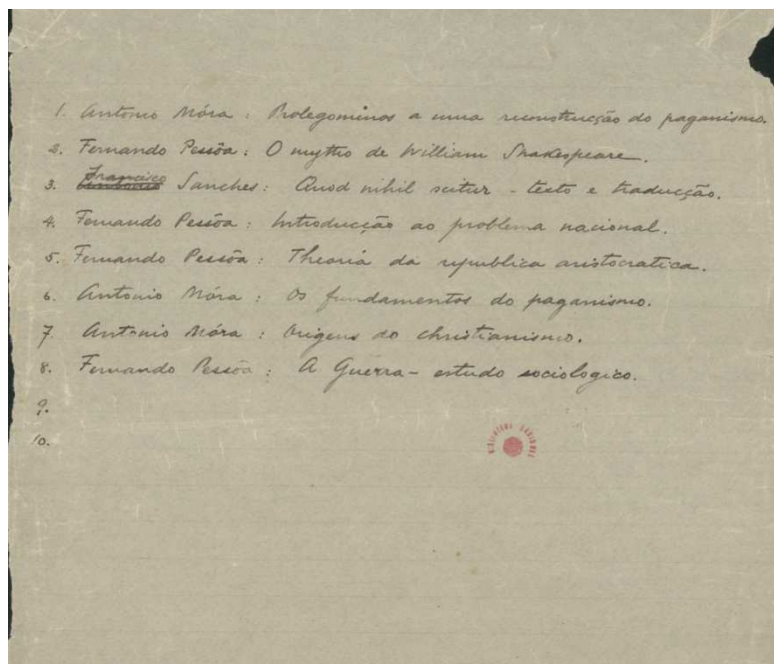 1. Antonio Móra: Prolegominos a uma reconstrucção do paganismo.
2. Fernando Pessôa: O mytho de William Shakespeare.
3. Francisco Sanches: Quod nihil scitur - texto e traducção.
4. Fernando Pessôa: Introducção ao problema nacional.
5. Fernando Pessôa: Theoria da republica aristocratica.
6. Antonio Móra: Os fundamentos do paganismo.
7. Antonio Móra: Origens do christianismo.
8. Fernando Pessôa: A Guerra - estudo sociologico.
9.
10.